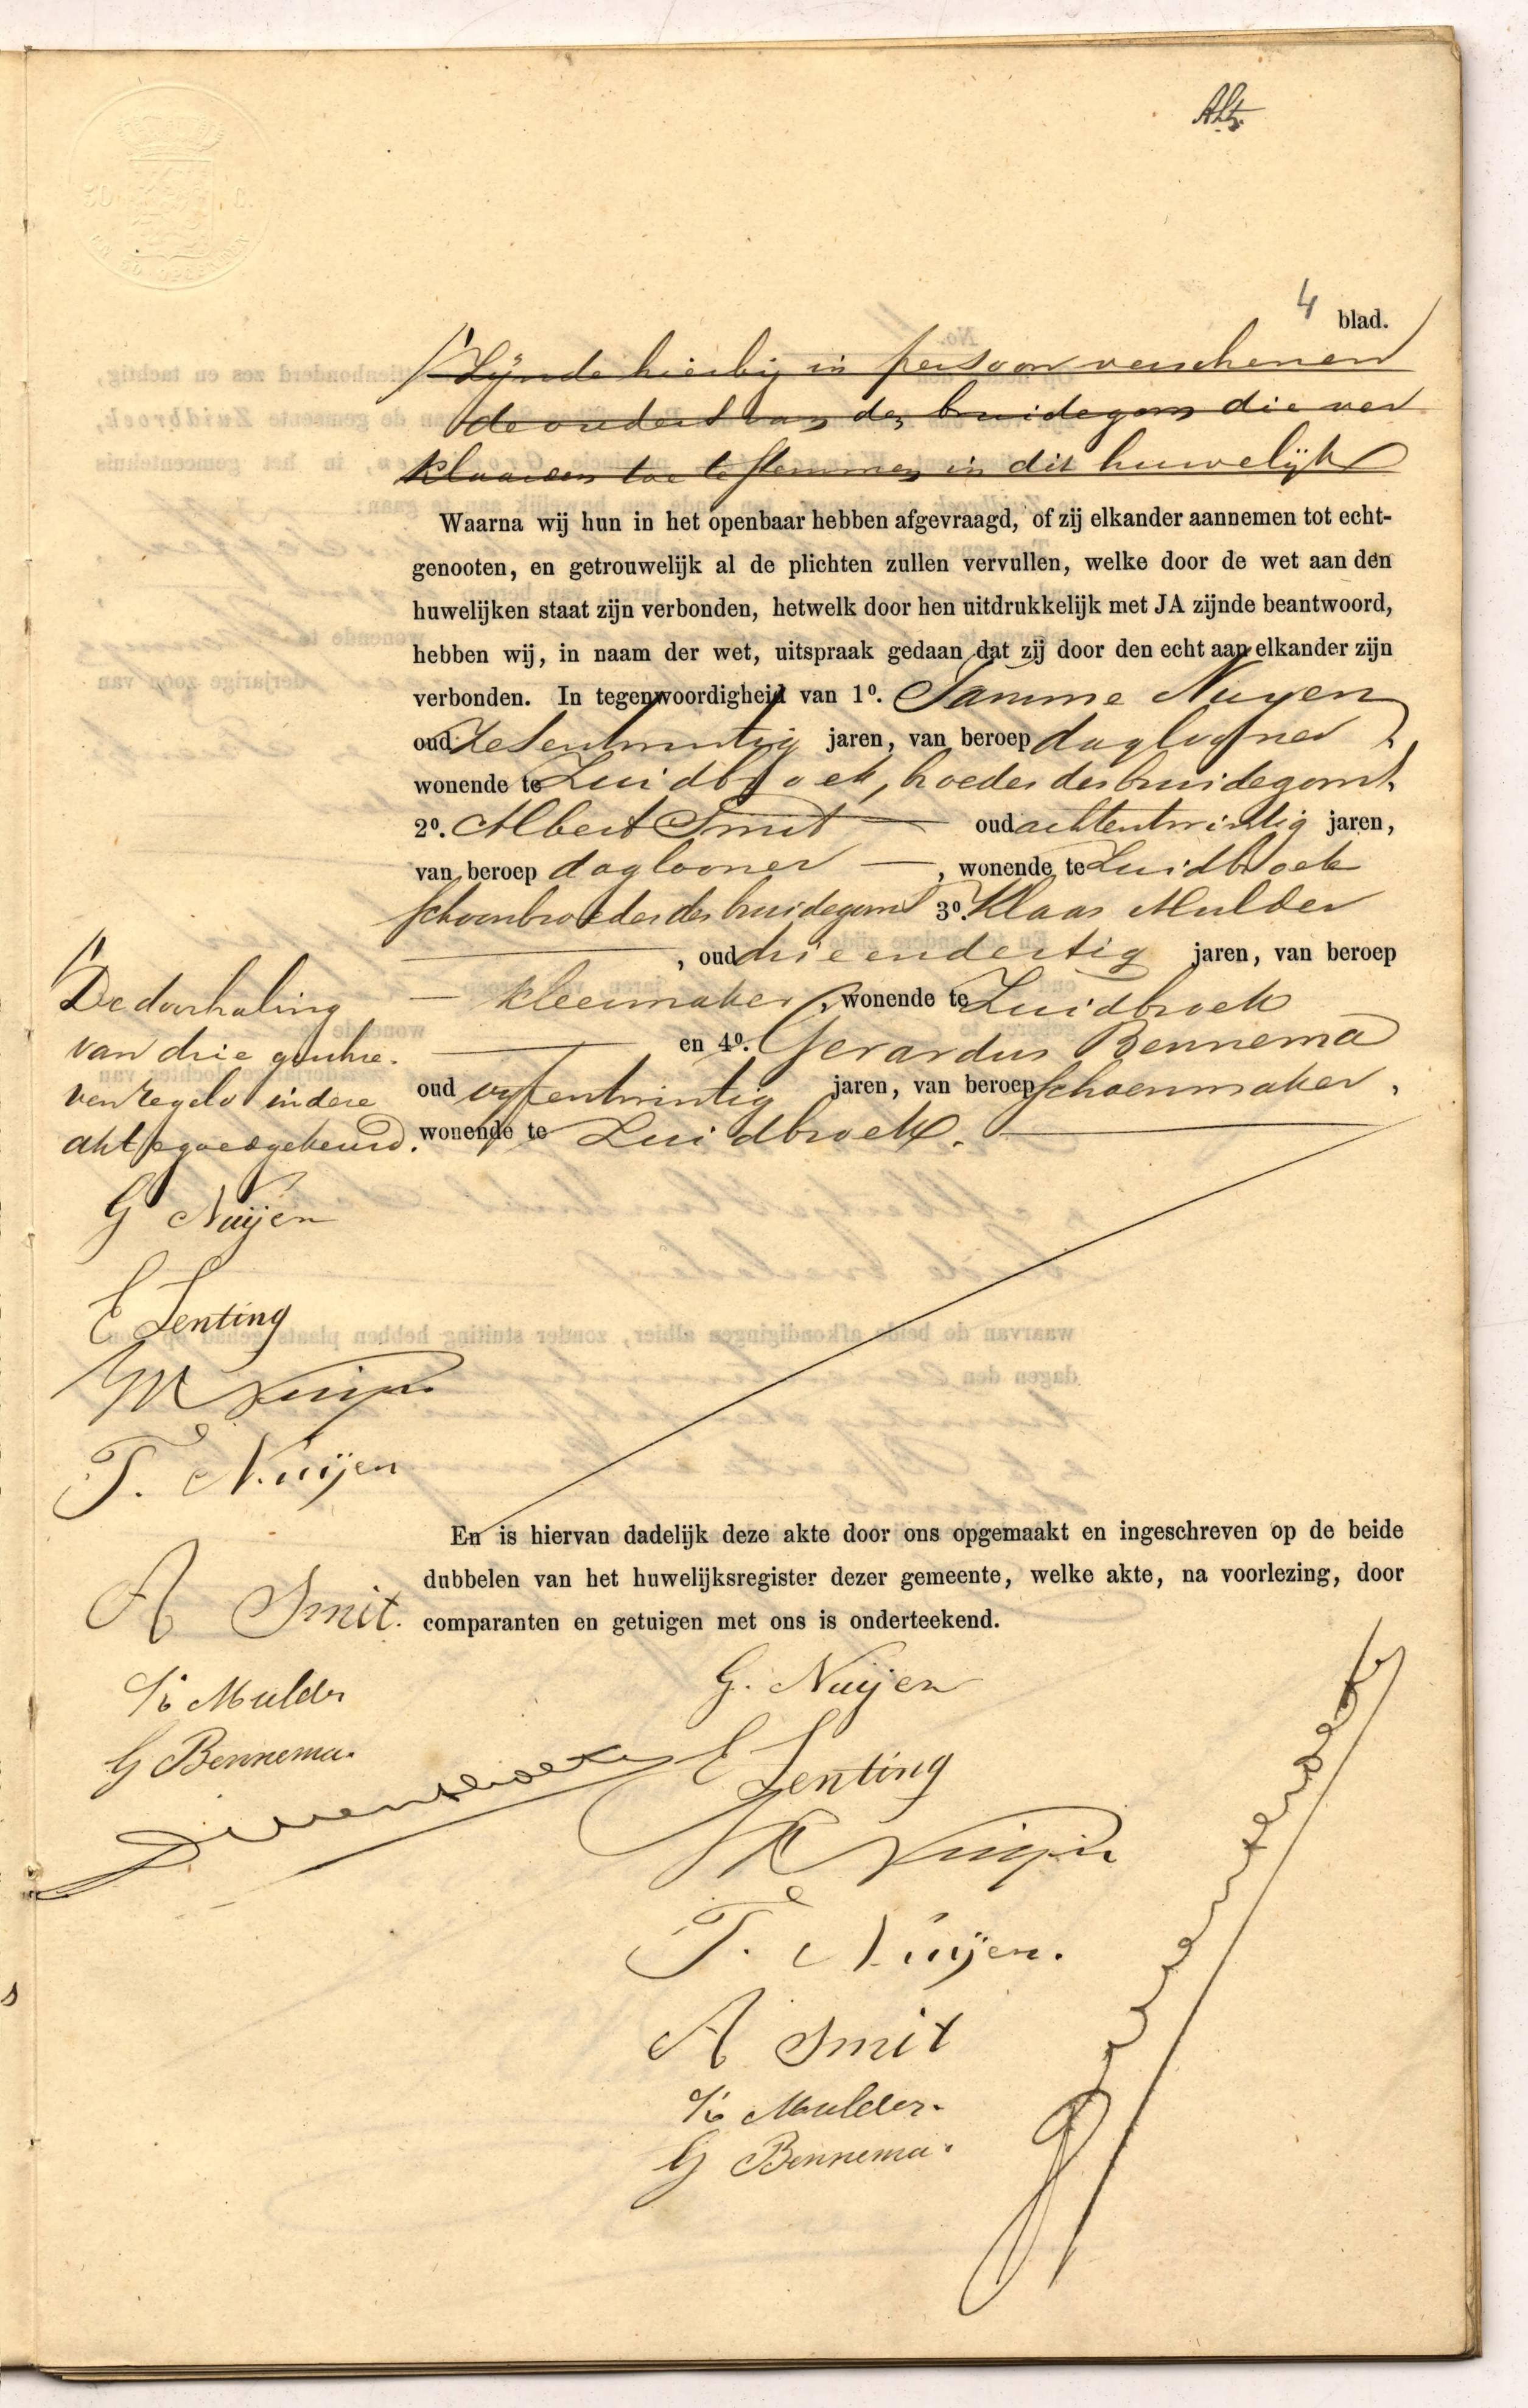 4 blad.
Zijnde hierbij in persoon verschenen
de ouders van den bruidegom die ver
klaarden toe te stemmen in dit huwelijk
Waarna wij hun in het openbaar hebben afgevraagd, of zij elkander aannemen tot echt-
genooten, en getrouwelijk al de plichten zullen vervullen, welke door de wet aan den
huwelijken staat zijn verbonden, hetwelk door hen uitdrukkelijk met JA zijnde beantwoord,
hebben wij, in naam der wet, uitspraak gedaan dat zij door den echt aan elkander zijn
verbonden. In tegenwoordigheid van 1o. Tamme Nuyen
oud zesentwintig jaren, van beroep daglooner,
wonende te Zuidbroek, broeder des bruidegoms,
2o. Albert Smit oud achtentwintig jaren,
van beroep daglooner, wonende te Zuidbroek
schoonbroeder des bruidegoms 3o. Klaas Mulder
, oud drieendertig jaren, van beroep
kleermaker, wonende te Zuidbroek
en 4o. Gerardus Bennema
oud vyfentwintig jaren, van beroep schoenmaker,
wonende te Zuidbroek.
De doorhaling
van drie geschre-
ven regels in deze
akte goedgekeurd.
G Nuijen
E Lenting
T. Nuijen
A Smit.
K Mulder
G Bennema.
En is hiervan dadelijk deze akte door ons opgemaakt en ingeschreven op de beide
dubbelen van het huwelijksregister dezer gemeente, welke akte, na voorlezing, door
comparanten en getuigen met ons is onderteekend.
G. Nuijen
E Lenting
T. Nuijen.
A Smit
K Mulder.
G Bennema.